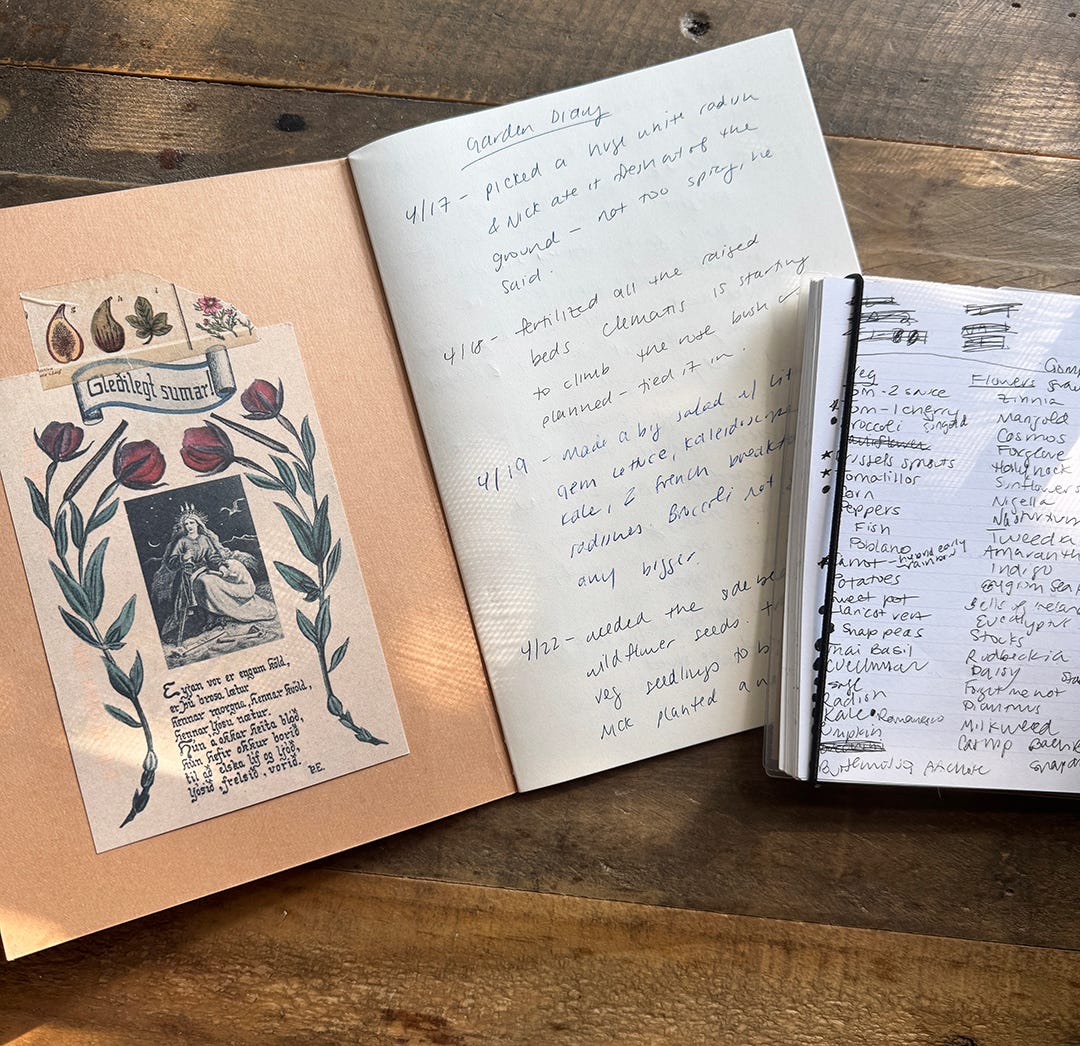 Gleðilegt sumar!
Eyjan vor er engum köld,
er þú brosa lætur
hennar morgna, hennar kvöld,
hennar ljósu nætur.
Hún á okkar heita blóð,
hún hefir okkur borið
til að elska líf og ljóð,
ljósið, frelsið, vorið.
Þ.E.
Garden Diary
4/17 - picked a huge white radish
& Nick ate it fresh out of the
ground - not too spicy, he
said.
4/18 - fertilized all the raised
beds clematis is starting
to climb the rose bush
planned - tied it in.
4/19 - made a big salad w/
gem lettuce, kaleidoscope
kale, & French
radishes. Broccoli not
any bigger.
4/22 - weeded the side
wildflower seeds.
veg seedlings to
planted
veg
tom - 2 sauce
tom - 1 cherry
broccoli
cauliflower
brussels sprouts
tomatillos
corn
peppers
Fish
Poblano
carrot - hybrid early
rainbow
potatoes
sweet pot
haricot vert
snap peas
Thai Basil
cucumber
Radish
Kale • Romanesco
pumpkin
Flowers
Zinnia
Marigold
Cosmos
Foxglove
Hollyhock
Sunflowers
Nigella
Nasturtium
Tweedia
Amaranth
Indigo
Bells of Ireland
Eucalyptus
Stocks
Rudbeckia
Daisy
Forget me not
Dianthus
Milkweed